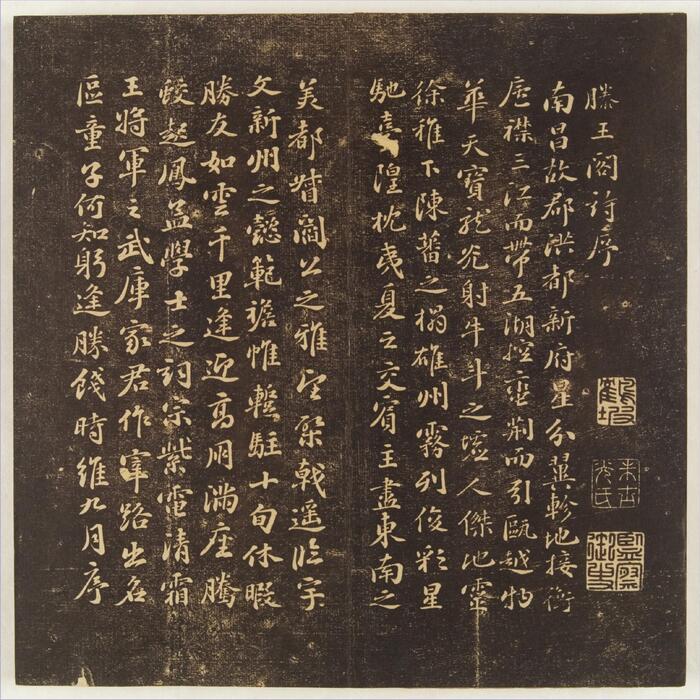 滕王閣詩序
南昌故郡洪都新府星分翼軫地接衡
廬襟三江而帶五湖控蠻荊而引甌越物
華天寶龍光射牛斗之墟人傑地靈
徐稚下陳蕃之榻雄州霧列俊彩星
馳臺隍枕夷夏之交賓主盡東南之
美都督閻公之雅望棨戟遥臨宇
文新州之懿範襜帷暫駐十旬休暇
勝友如雲千里逢迎高朋滿座騰
蛟起鳳孟學士之詞宗紫電清霜
王將軍之武庫家君作宰路出名
區童子何知躬逢勝餞時維九月序
監察御史